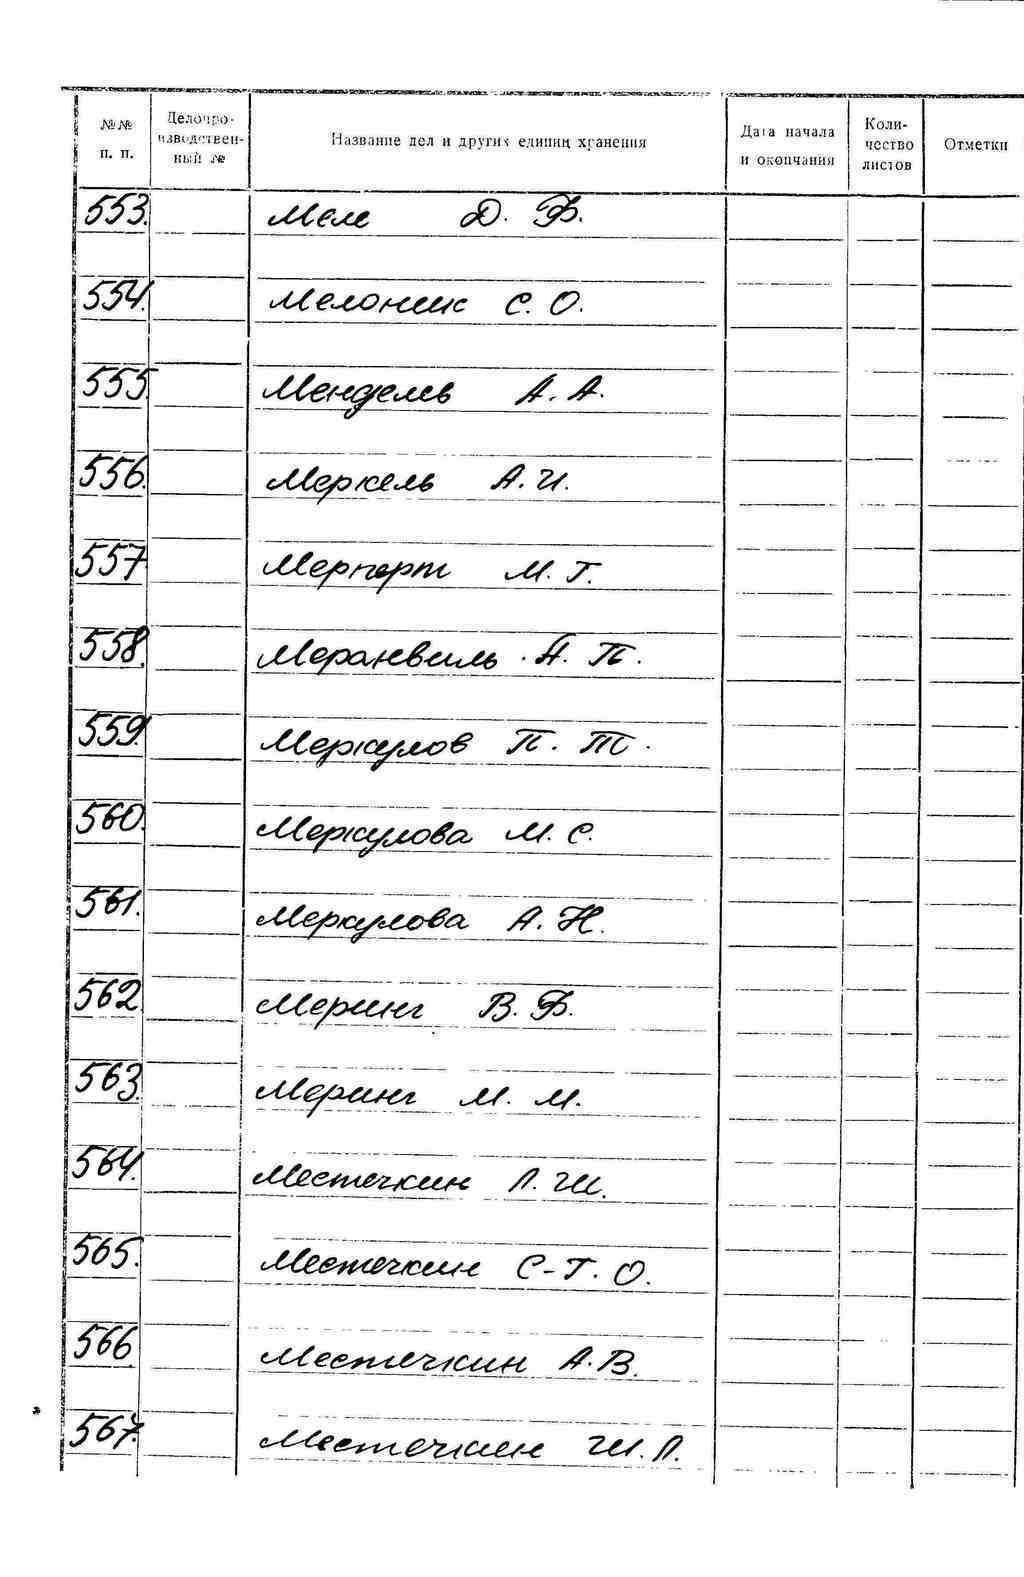 №№ п. п. Делопроизводственный № Название дел и других единиц хранения Дата начала и окончания Количество листов Отметки
553. Меле Д. Ф.
554. Мелоник С. О.
555. Мендель А. А.
556. Меркель А. И.
557. Мерперт М. Г.
558. Меранвиль А. П.
559. Меркулов П. Т.
560. Меркулова М. С.
561. Меркулова А. Н.
562. Меринг В. Ф.
563. Меринг М. М.
564. Местечкин Л. Ш.
565. Местечкин С-Г. О.
566 Местечкин А. В.
567. Местечкин Ш. Л.